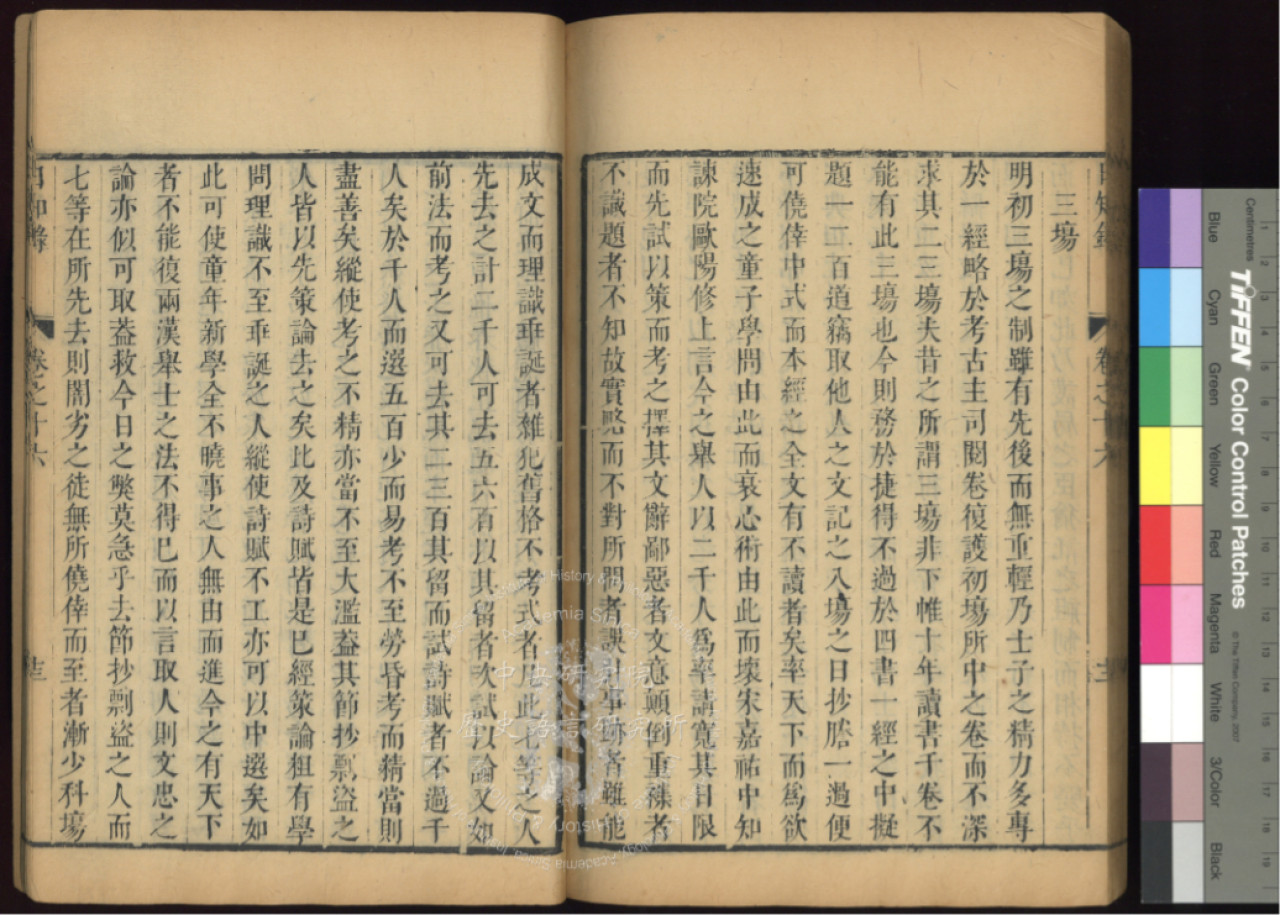 三場
明初三塲之制雖有先後而無重輕乃士子之精力多專
於一經略於考古主司閱卷復護初塲所中之卷而不深
求其二三塲夫昔之所謂三塲非下帷十年讀書千卷不
能有此三塲也今則務於捷得不過於四書一經之中擬
題一二百道竊取他人之文記之入塲之日抄謄一過便
可僥倖中式而本經之全文有不讀者矣率天下而爲欲
速成之童子學問由此而衰心術由此而壞宋嘉祐中知
諫院歐陽修上言今之舉人以二千人爲率請寬其日限
而先試以策而考之擇其文辭鄙惡者文意顛倒重襍者
不識題者不知故實略而不對所問者誤引事跡者雖能
成文而理識乖誕者雜犯舊格不考式者凡此七等之人
先去之計二千人可去五六百以其留者次試以論又如
前法而考之又可去其二三百其留而試詩賦者不過千
人矣於千人而選五百少而易考不至勞昏考而精當則
盡善矣縱使考之不精亦當不至大濫葢其節抄剽盜之
人皆以先策論去之矣比及詩賦皆是已經策論粗有學
問理識不至乖誕之人縱使詩賦不工亦可以中選矣如
此可使童年新學全不曉事之人無由而進今之有天下
者不能復兩漢舉士之法不得已而以言取人則文忠之
論亦似可取葢救今日之弊莫急乎去節抄剽盜之人而
七等在所先去則闇劣之徒無所僥倖而至者漸少科塲
日知錄
卷之十六
中央研究院
歷史語言研究所
Centimetres
TIFFEN Color Control Patches
© The Tiffen Company, 2007
Blue
Cyan
Green
Yellow
Red
Magenta
White
3/Color
Black